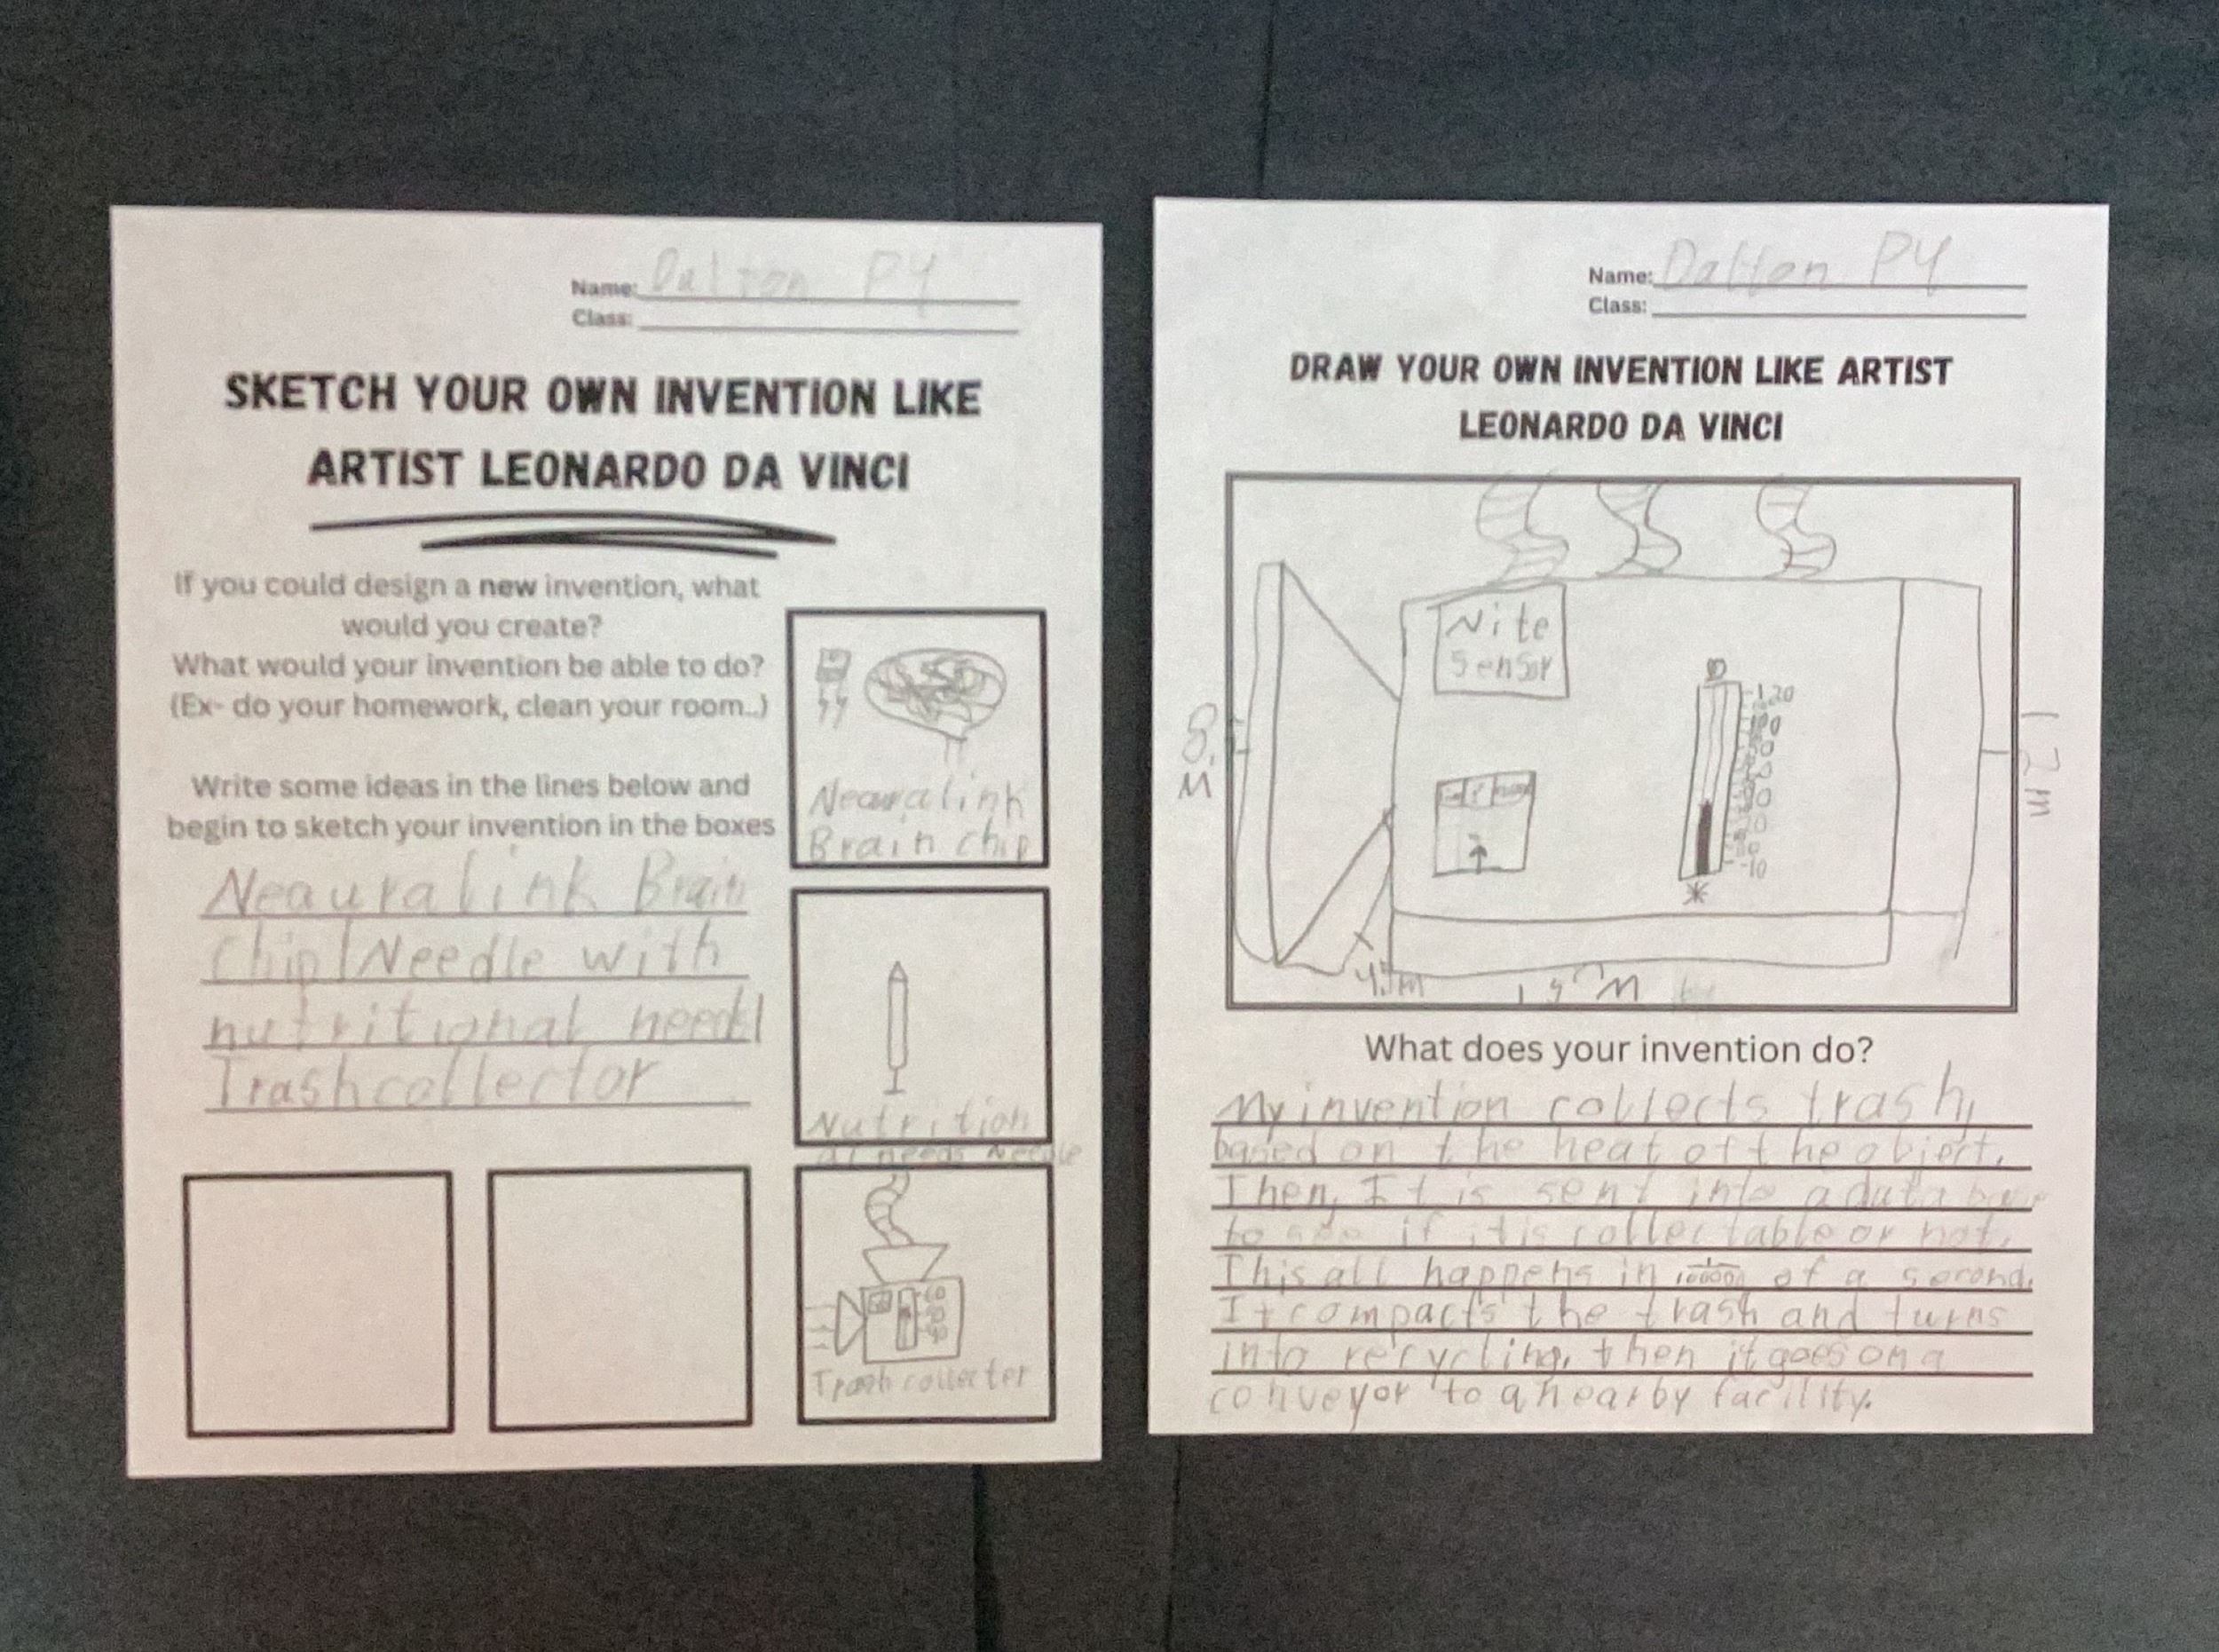 Name: Dalton P4
Class:
SKETCH YOUR OWN INVENTION LIKE
ARTIST LEONARDO DA VINCI
If you could design a new invention, what
would you create?
What would your invention be able to do?
(Ex- do your homework, clean your room..)
Write some ideas in the lines below and
begin to sketch your invention in the boxes
Neauralink Brain
Chip/Needle with
nutritional need/
Trashcollector
Neauralink
Brain chip
Nutrition
al needs Needle
Trash collecter
Name: Dalton P4
Class:
DRAW YOUR OWN INVENTION LIKE ARTIST
LEONARDO DA VINCI
Nite
Sensor
120
-10
M
12m
M
What does your invention do?
My invention collects trash,
based on the heat of the object.
Then, It is sent into a data
to see if it is collectable or not.
This all happens in of a second.
It compacts the trash and turns
into recycling, then it goes on a
conveyor to a nearby facility.